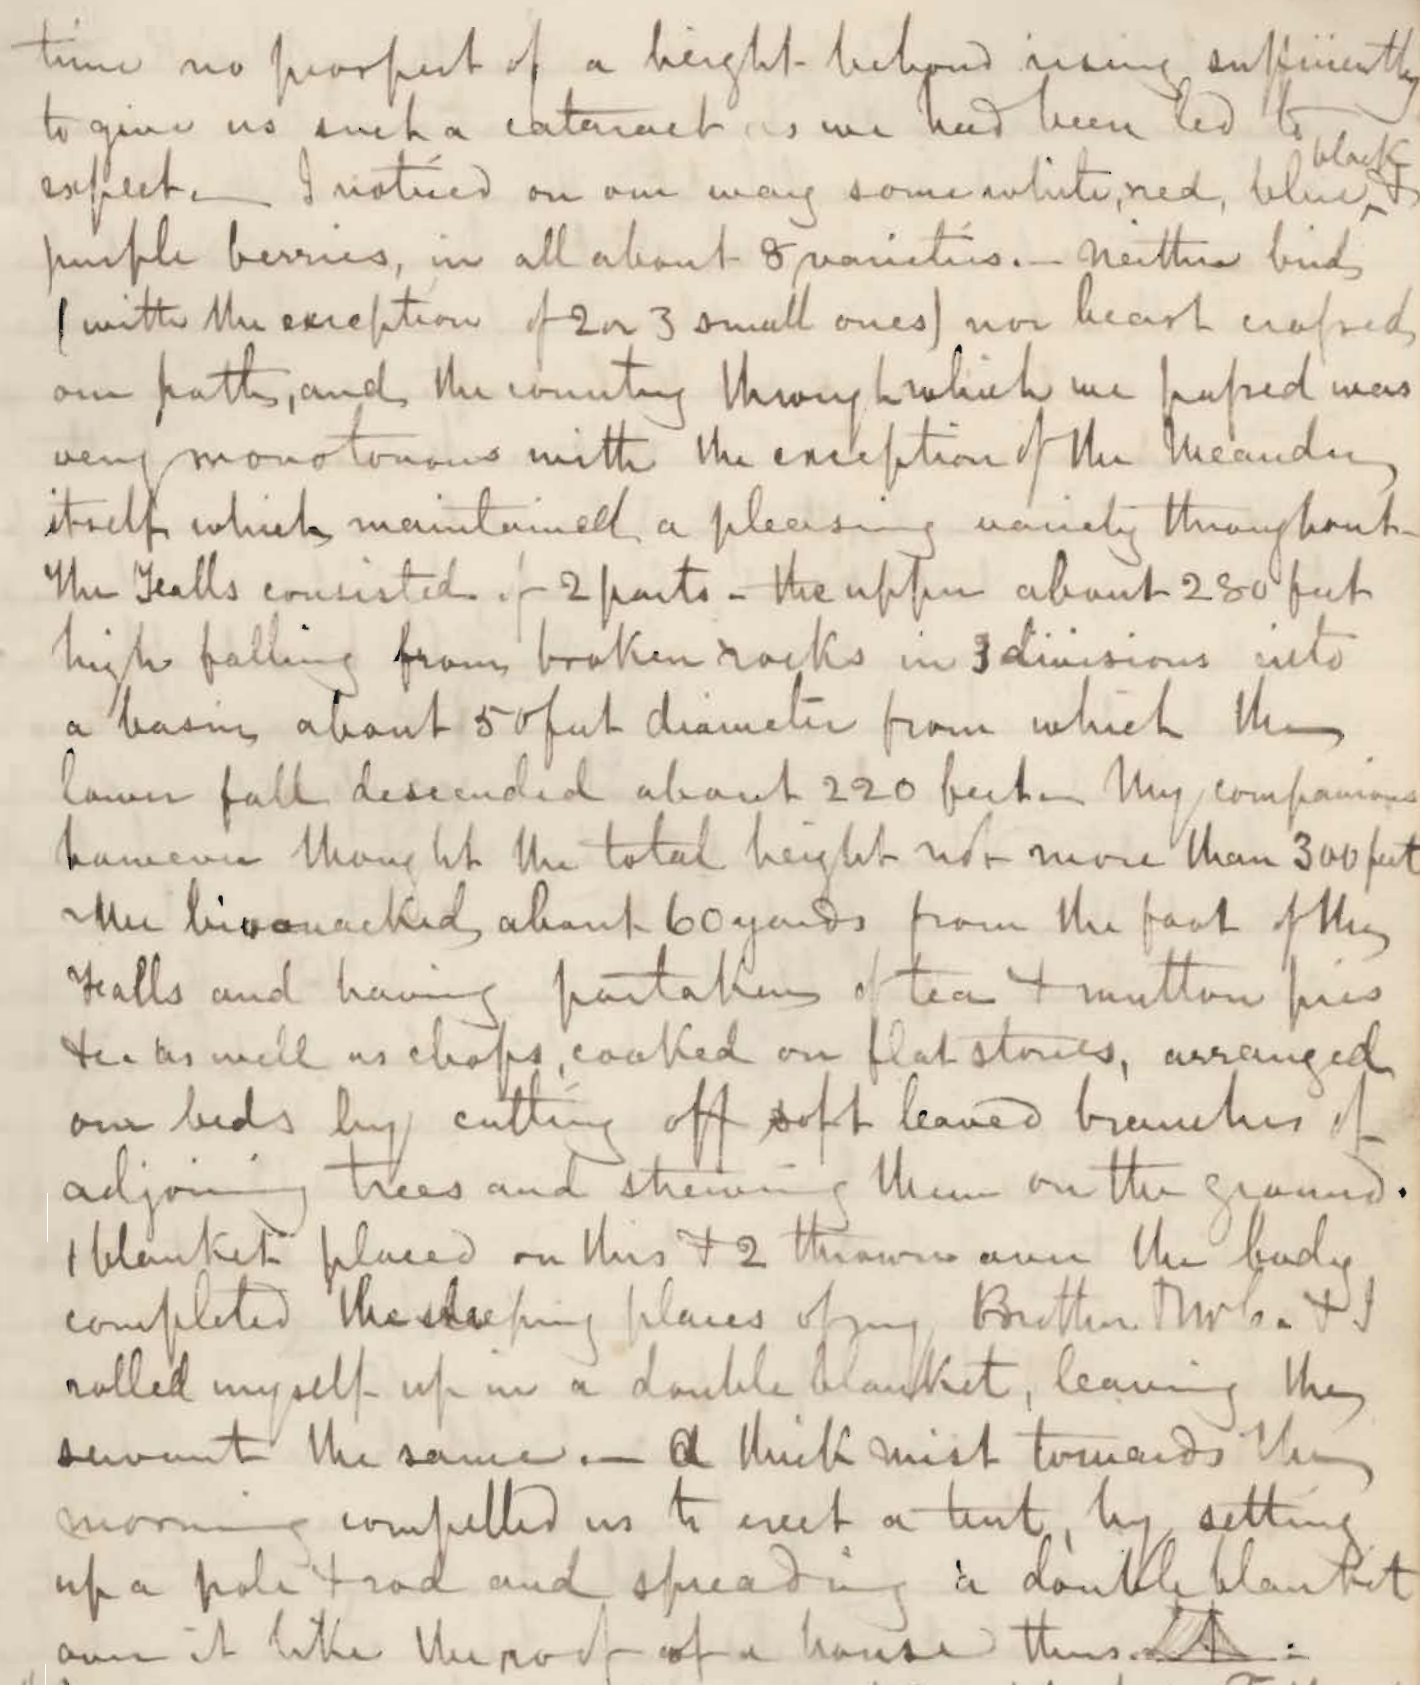 time no prospect of a height beyond rising sufficiently
to give us such a cataract as we had been led to
expect. — I noticed on our way some white, red, blue, black &
purple berries, in all about 8 varieties. — Neither birds
(with the exception of 2 or 3 small ones) nor beast crossed
our path, and the country through which we passed was
very monotonous with the exception of the Meander
itself which maintained a pleasing variety throughout —
The Falls consisted of 2 parts – the upper about 280 feet
high falling from broken rocks in 3 divisions into
a basin about 50 feet diameter from which the
lower fall descended about 220 feet — My companions
however thought the total height not more than 300 feet
We bivouacked about 60 yards from the foot of the
Falls and having partaken of tea & mutton pies
&c. as well as chops, cooked on flat stones, arranged
our beds by cutting off soft leaved branches of
adjoining trees and strewing them on the ground.
1 blanket placed on this & 2 thrown over the body
completed the sleeping places of my Brother & I
rolled myself up in a double blanket, leaving the
servant the same. — A thick mist towards the
morning compelled us to erect a tent, by setting
up a pole & rod and spreading a double blanket
over it like the roof of a house thus